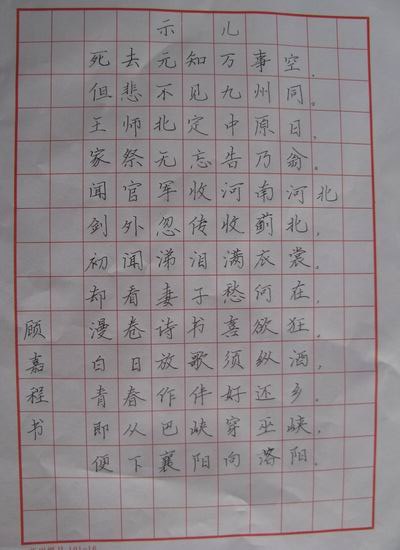 示儿
死去元知万事空，
但悲不见九州同。
王师北定中原日，
家祭无忘告乃翁。
闻官军收河南河北
剑外忽传收蓟北，
初闻涕泪满衣裳。
却看妻子愁何在，
漫卷诗书喜欲狂。
白日放歌须纵酒，
青春作伴好还乡。
即从巴峡穿巫峡，
便下襄阳向洛阳。
顾嘉程书